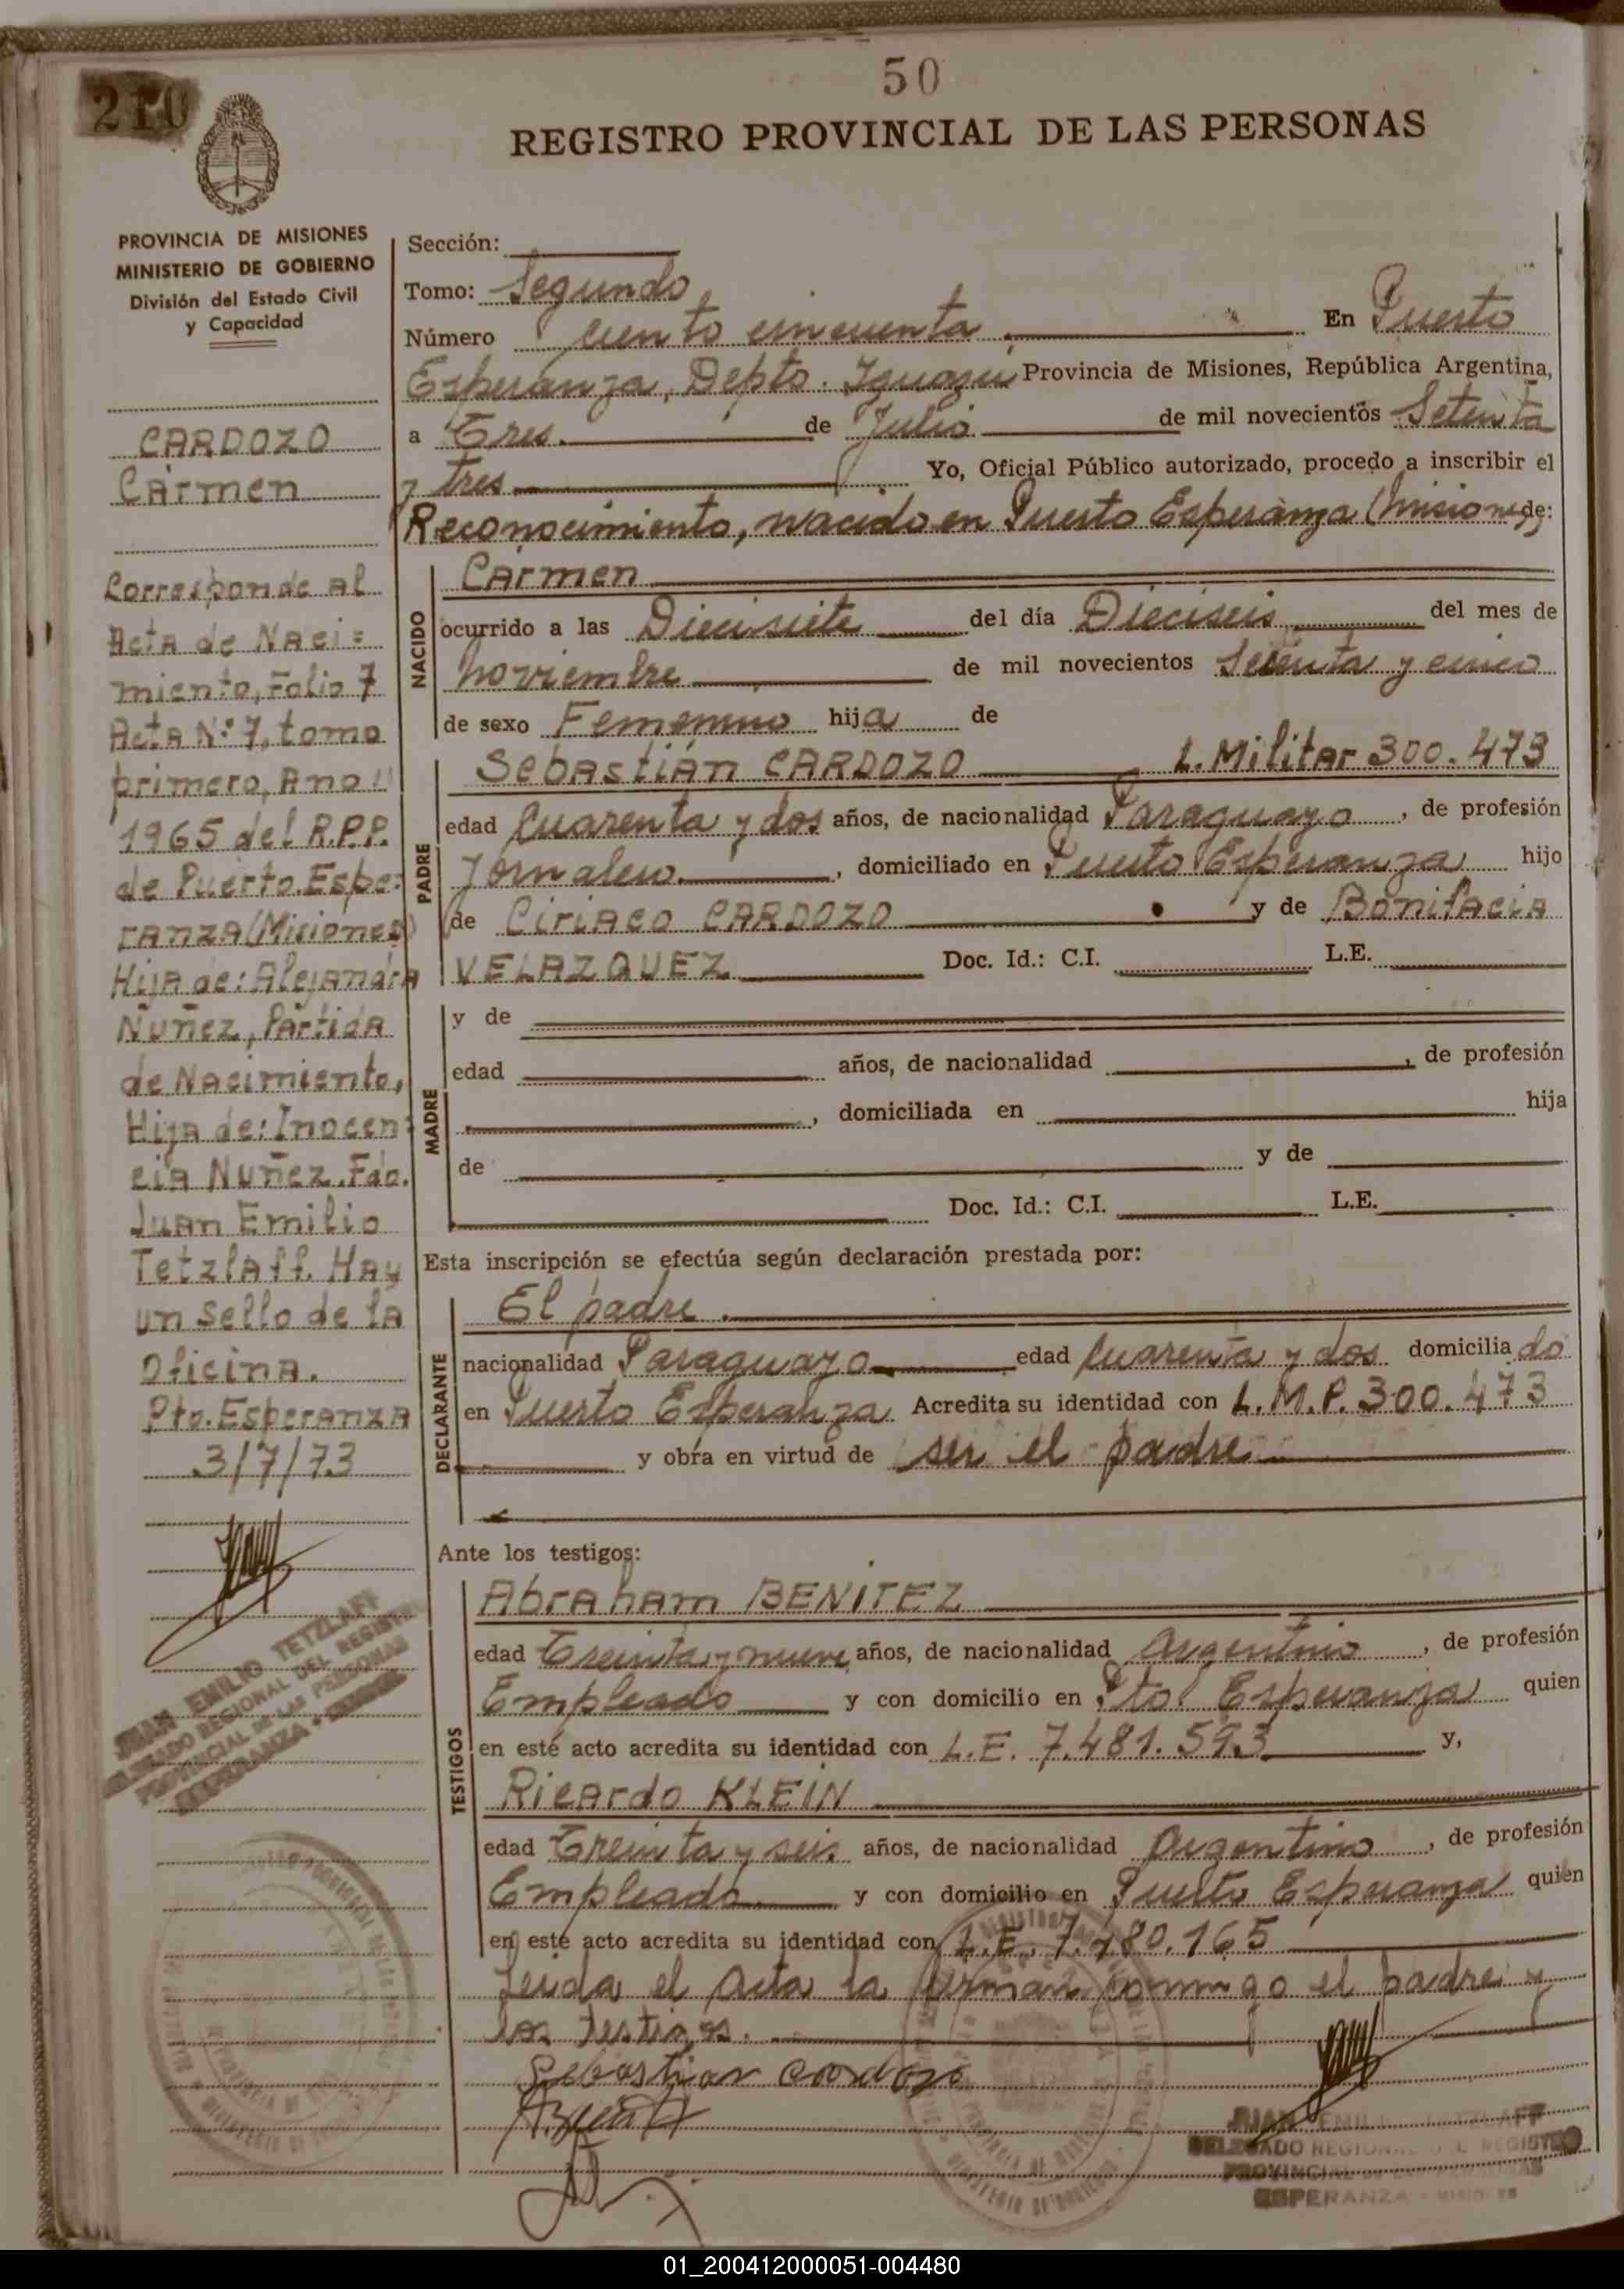 50
210
REGISTRO PROVINCIAL DE LAS PERSONAS
PROVINCIA DE MISIONES
MINISTERIO DE GOBIERNO
División del Estado Civil
y Capacidad
CARDOZO
Carmen
Corresponde al
Acta de Naci=
miento, Folio 7
Acta Nº 7, tomo
primero, Año
1965 del R.P.P.
de Puerto Espe=
ranza (Misiones)
Hija de: Alejandra
Nuñez, Partida
de Nacimiento,
Hija de: Inocen=
cia Nuñez. Fdo.
Juan Emilio
Tetzlaff. Hay
un sello de la
Oficina.
Pto. Esperanza
3/7/73
JUAN EMILIO TETZLAFF
DELEGADO REGIONAL DEL REGISTRO
PROVINCIAL DE LAS PERSONAS
ESPERANZA - MISIONES
Sección:
Tomo: Segundo
Número ciento cincuenta En Puerto
Esperanza, Depto. Iguazú Provincia de Misiones, República Argentina,
a Tres de Julio de mil novecientos Setenta
y tres Yo, Oficial Público autorizado, procedo a inscribir el
Reconocimiento, nacido en Puerto Esperanza (Misiones) de:
NACIDO
Carmen
ocurrido a las Diecisiete del día Dieciseis del mes de
Noviembre de mil novecientos Sesenta y cinco
de sexo Femenino hija de
PADRE
Sebastián CARDOZO L. Militar 300.473
edad Cuarenta y dos años, de nacionalidad Paraguayo, de profesión
Jornalero, domiciliado en Puerto Esperanza hijo
de Ciriaco CARDOZO y de Bonifacia
VELAZQUEZ Doc. Id.: C.I. L.E.
MADRE
y de
edad años, de nacionalidad , de profesión
, domiciliada en hija
de y de
Doc. Id.: C.I. L.E.
Esta inscripción se efectúa según declaración prestada por:
DECLARANTE
El padre.
nacionalidad Paraguayo edad Cuarenta y dos domiciliado
en Puerto Esperanza Acredita su identidad con L.M.P. 300.473
y obra en virtud de ser el padre
Ante los testigos:
TESTIGOS
Abraham BENITEZ
edad Treinta y nueve años, de nacionalidad Argentino, de profesión
Empleado y con domicilio en Pto. Esperanza quien
en este acto acredita su identidad con L.E. 7.481.593 y,
Ricardo KLEIN
edad Treinta y seis años, de nacionalidad Argentino, de profesión
Empleado y con domicilio en Puerto Esperanza quien
en este acto acredita su identidad con L.E. 7.480.165
Leida el Acta la firman conmigo el padre y
los testigos.
Sebastian Cardozo
JUAN EMILIO TETZLAFF
DELEGADO REGIONAL DEL REGISTRO
PROVINCIAL DE LAS PERSONAS
ESPERANZA - MISIONES
01_200412000051-004480